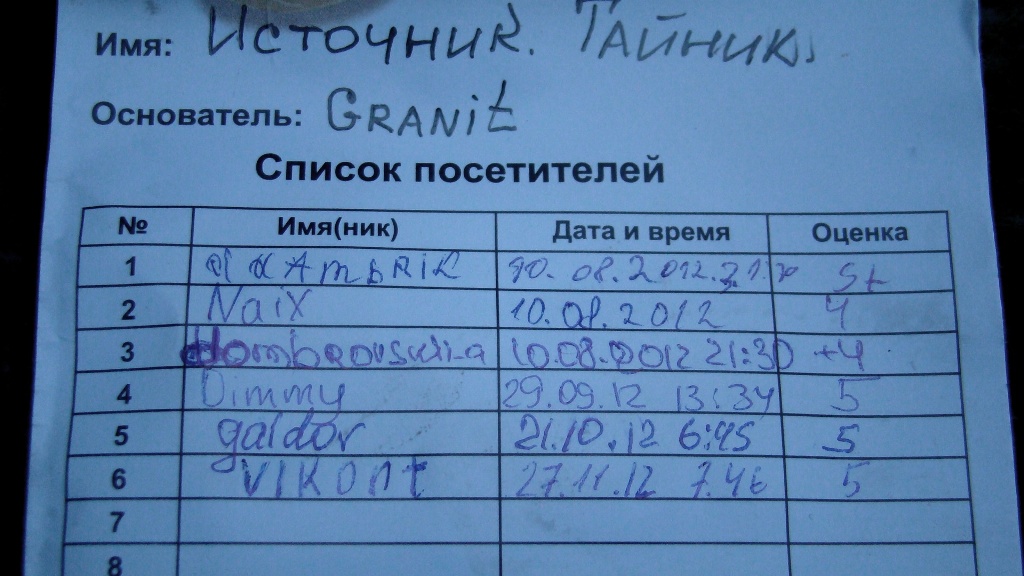 Имя: Источник. Тайник.
Основатель: GRANit
Список посетителей
№ Имя(ник) Дата и время Оценка
1 10.08.2012.
2 Naix 10.08.2012 4
3 10.08.2012 21:30 +4
4 Dimmy 29.09.12 13:34 5
5 galdor 21.10.12 6:45 5
6 VIKONt 27.11.12 7.46 5
7
8